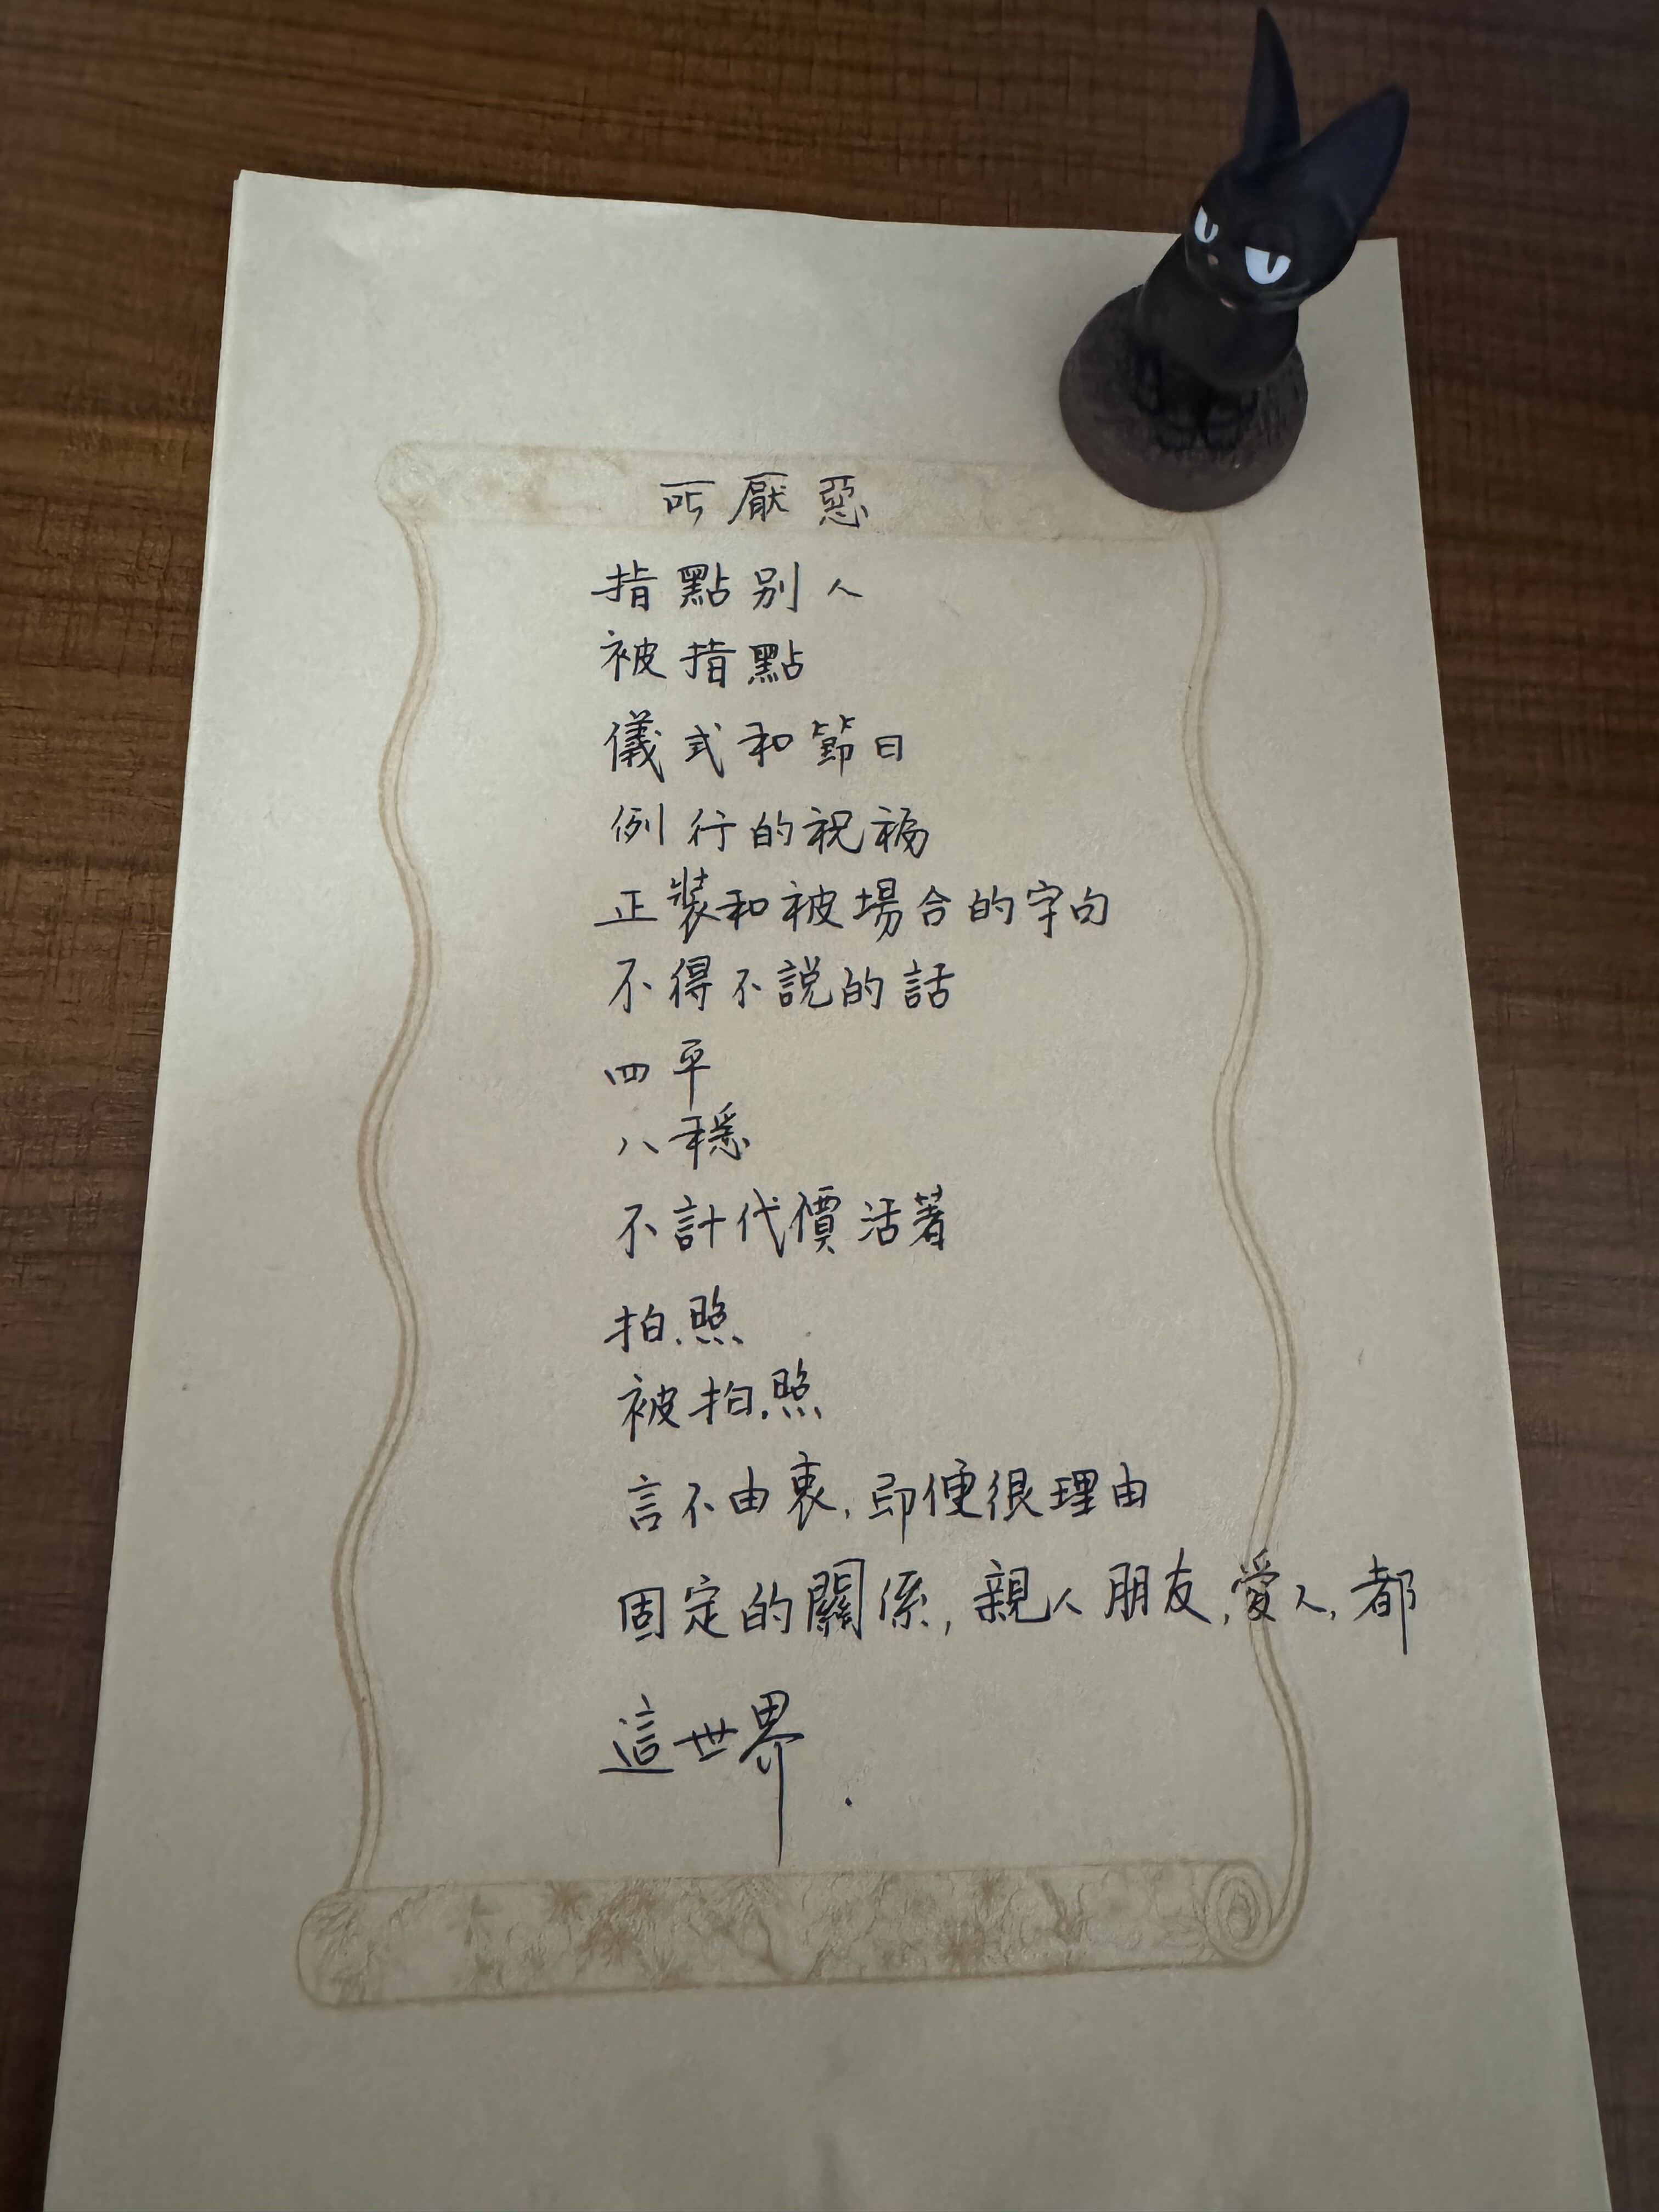 所厭惡
指點別人
被指點
儀式和節日
例行的祝福
正裝和被場合的字句
不得不說的話
四平
八穩
不計代價活著
拍照
被拍照
言不由衷,即便很理由
固定的關係,親人朋友,愛人,都
這世界.